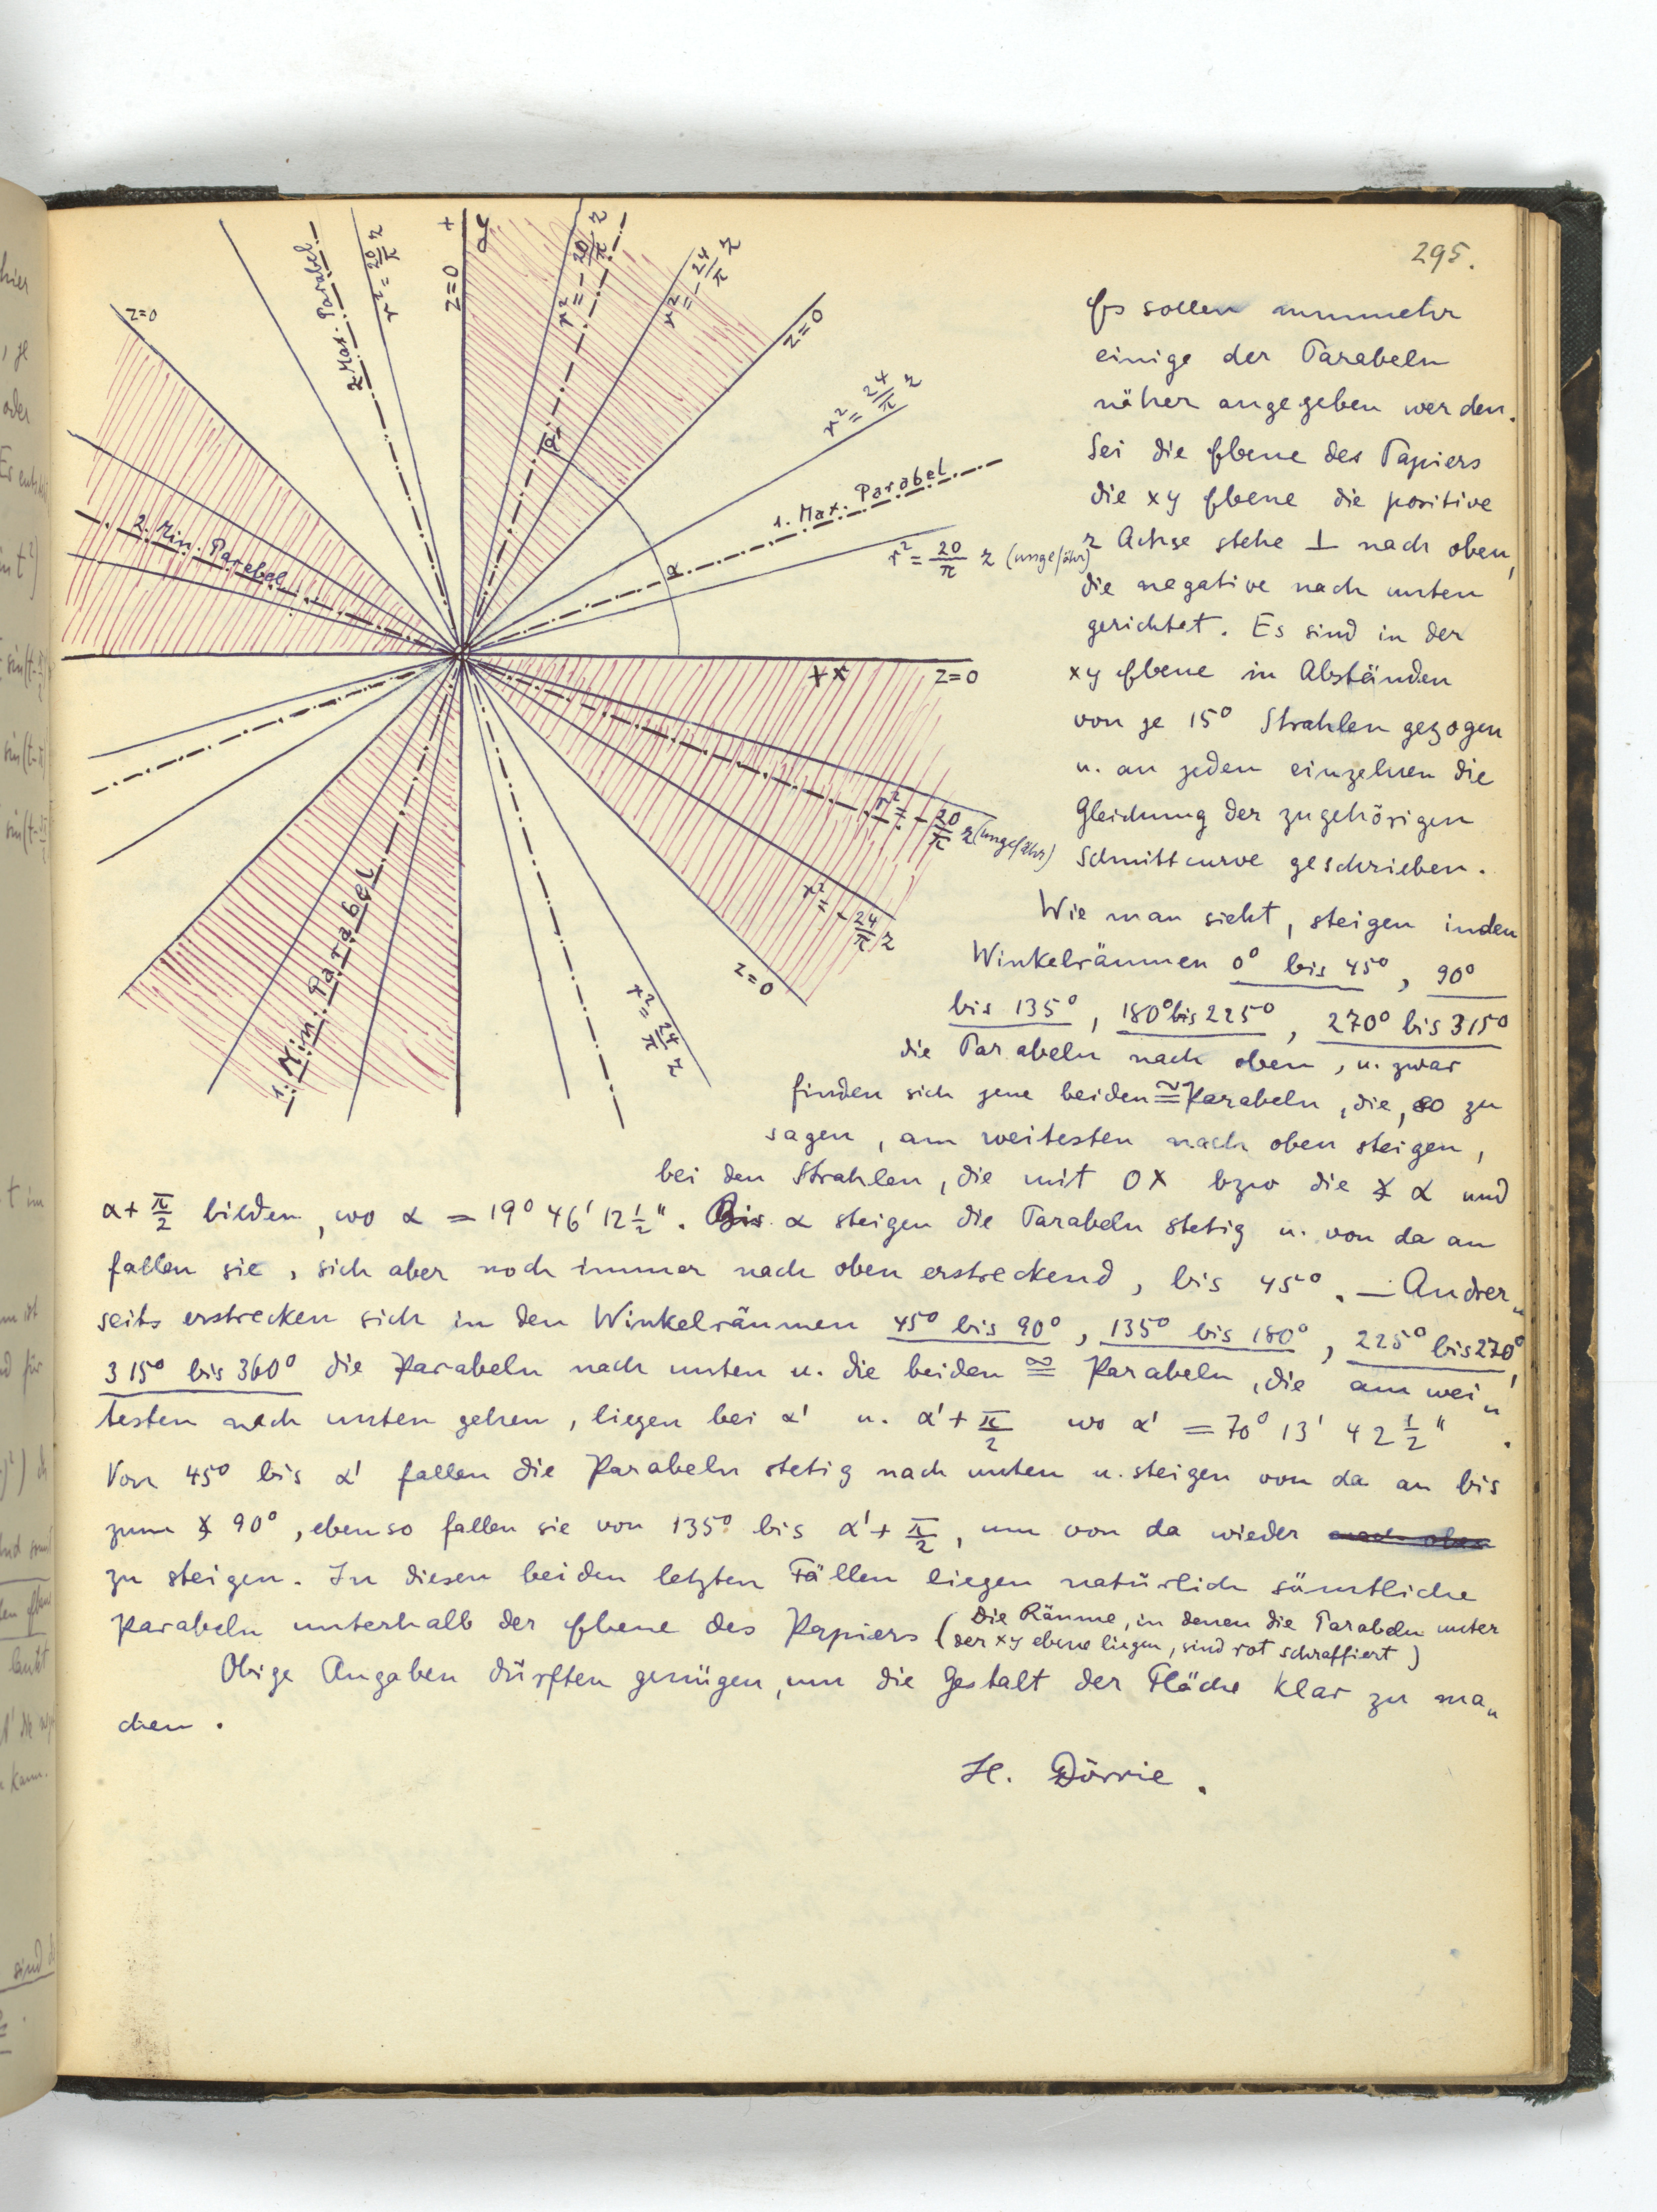 295.
z=0
2 Max. Parabel
r² = 20/π z
+ y
z=0
r² = - 20/π z
r² = - 24/π z
z=0
r² = 24/π z
1. Max. Parabel
r² = 20/π z (ungefähr)
α
α'
2. Min. Parabel
+x
z=0
r² = - 20/π z (ungefähr)
r² = - 24/π z
z=0
r² = 24/π z
1. Min. Parabel
Es sollen nunmehr
einige der Parabeln
näher angegeben werden.
Sei die Ebene des Papiers
die xy Ebene die positive
z Achse stehe ⊥ nach oben,
die negative nach unten
gerichtet. Es sind in der
xy Ebene in Abständen
von je 15° Strahlen gezogen
u. an jeden einzelnen die
Gleichung der zugehörigen
Schnittcurve geschrieben.
Wie man sieht, steigen in den
Winkelräumen 0° bis 45°, 90°
bis 135°, 180° bis 225°, 270° bis 315°
die Parabeln nach oben, u. zwar
finden sich jene beiden ≅ Parabeln, die, so zu
sagen, am weitesten nach oben steigen,
bei den Strahlen, die mit OX bzw die ∡ α und
α + π/2 bilden, wo α = 19° 46' 12 1/2". Bis α steigen die Parabeln stetig u. von da an
fallen sie, sich aber noch immer nach oben erstreckend, bis 45°. — Andrer„
seits erstrecken sich in den Winkelräumen 45° bis 90°, 135° bis 180°, 225° bis 270°,
315° bis 360° die Parabeln nach unten u. die beiden ≅ Parabeln, die am wei„
testen nach unten gehen, liegen bei α' u. α' + π/2 wo α' = 70° 13' 42 1/2".
Von 45° bis α' fallen die Parabeln stetig nach unten u. steigen von da an bis
zum ∡ 90°, ebenso fallen sie von 135° bis α' + π/2, um von da wieder nach oben
zu steigen. In diesen beiden letzten Fällen liegen natürlich sämtliche
Parabeln unterhalb der Ebene des Papiers (Die Räume, in denen die Parabeln unter
der xy ebene liegen, sind rot schraffiert)
Obige Angaben dürften genügen, um die Gestalt der Fläche klar zu ma„
chen.
H. Dörrie.